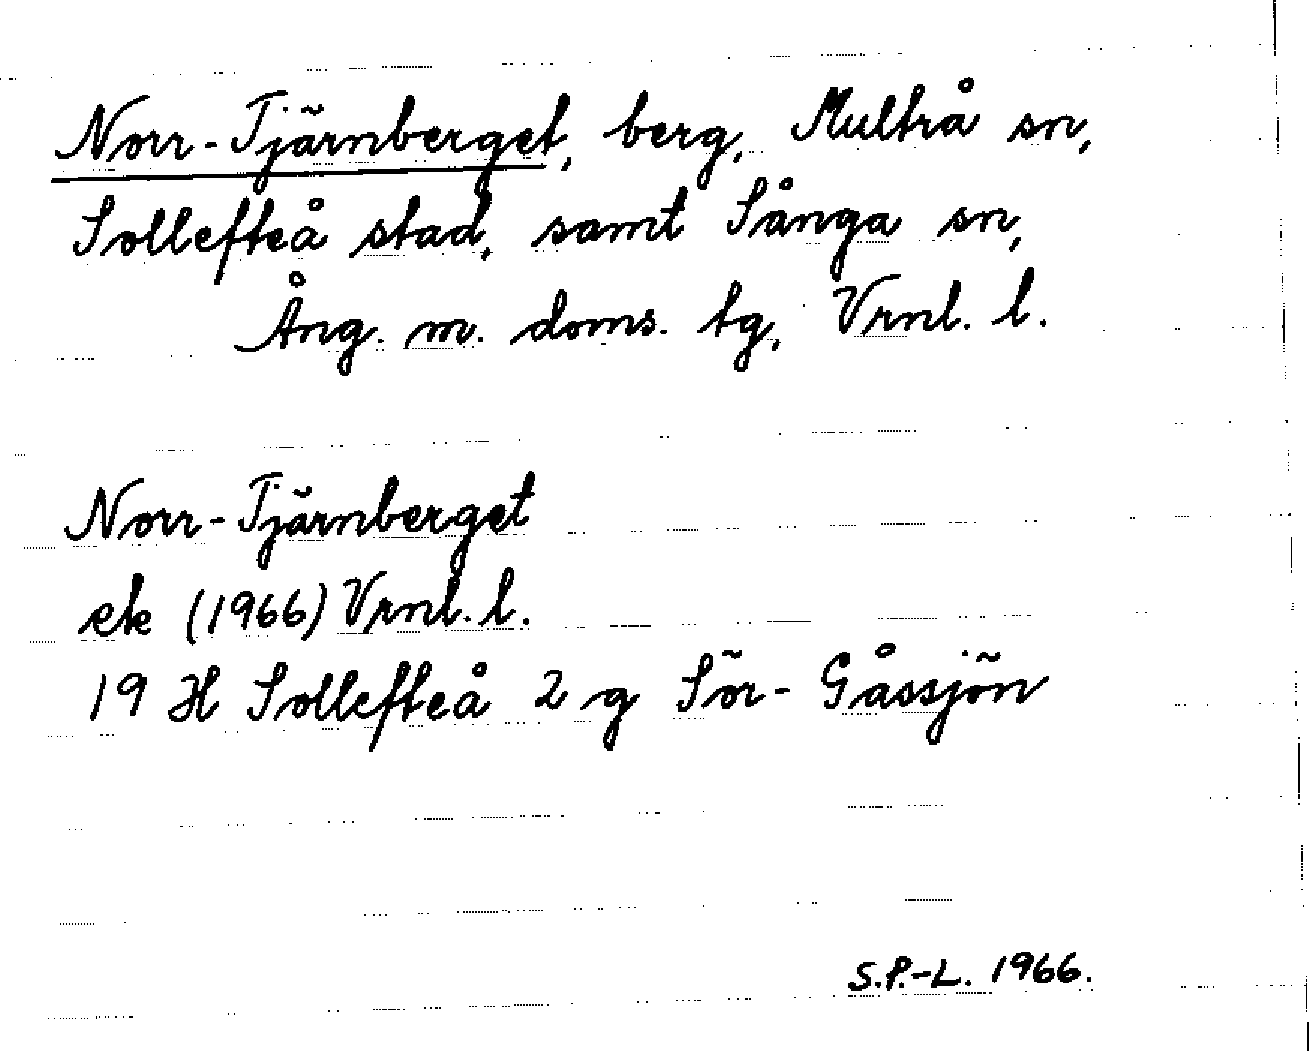 Norr-Tjärnberget, berg, Multrå sn,
Sollefteå stad, samt Sånga sn,
Ång. m. doms. tg, Vrnl. l.
Norr-Tjärnberget
ek (1966) Vrnl. l.
19 H Sollefteå 2 g Sör-Gåssjön
S.P.-L. 1966.